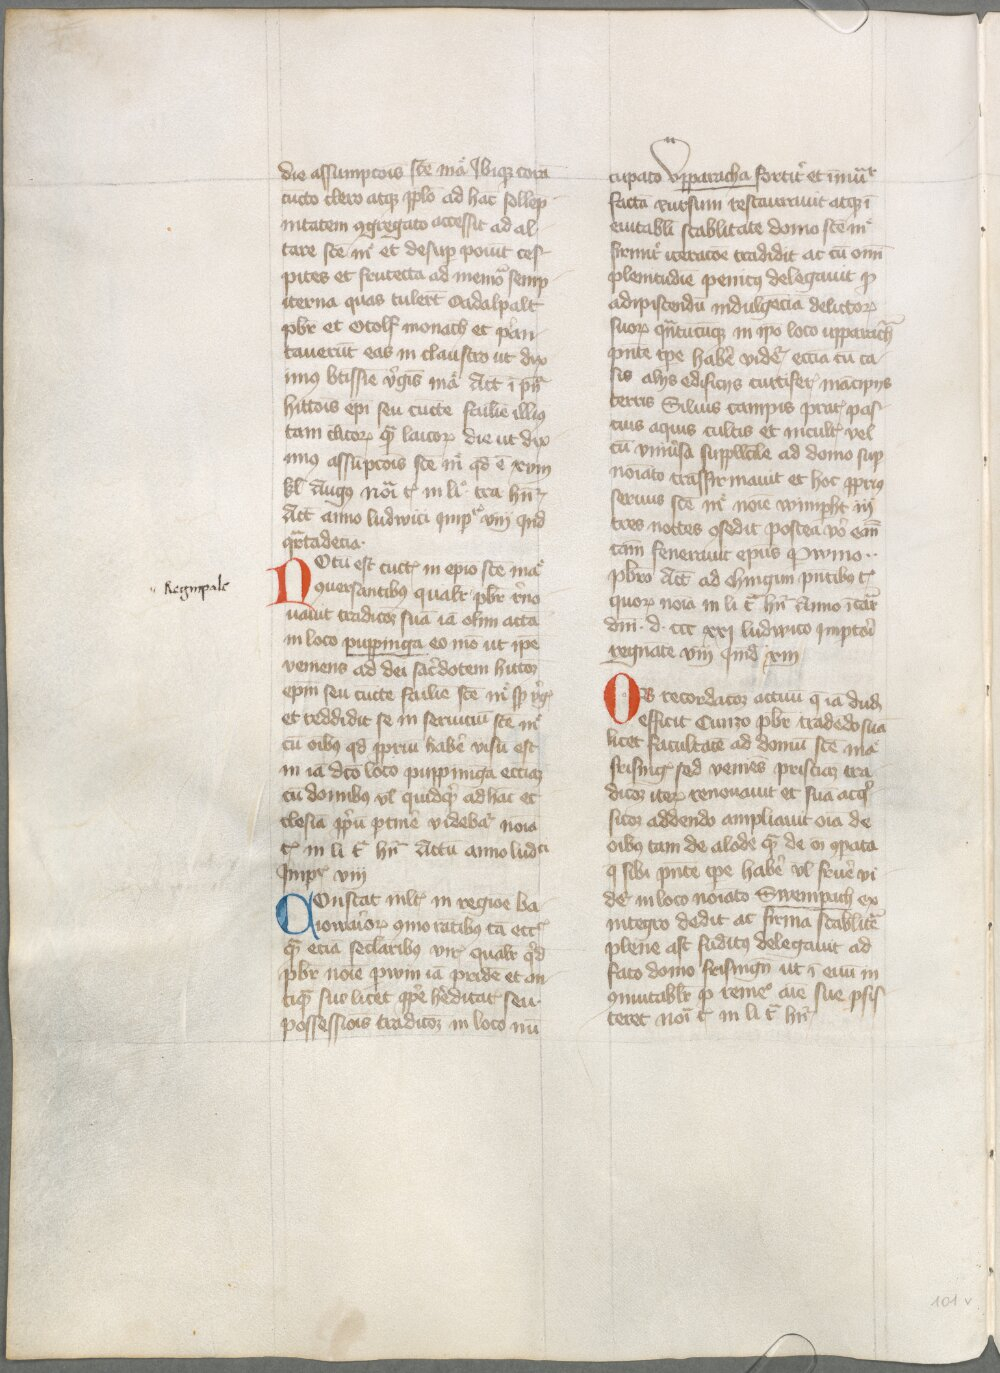 die assumptōis stē mā Ibiqȝ corā
cūcto clero atqȝ pplō ad hāc sollep
nitatem ꝯgregato accessit ad al
tare stē mͬ et desup poīut ces
pites et frutecta ad memoͣ semp
iterna quas tulerūt Oadalpalt
pbr et Otolf monach et plan
tauerūt eas in claustro ut dix
imꝰ btissīe vgīs mā Actū ī pn̄
hittōis epī seu cūcte familie illiꝰ
tam clicorꝝ qͣ laicorꝝ die ut dix
imꝰ assūptōis stē mͬ qd ē xviii
kl Augꝰ noīa tͥ in li tra hn̄
Act anno ludwici impͬis viii Ind
qͣrtadecīa
Notū est cūctͥ in epīo stē maͤ
ꝯuersantibꝰ qualr pbr reno
uauit tradicōȝ suā iā olim actā
in loco puppinga eo mō ut ipe
veniens ad dei sacdotem hittoȝ
epm̄ seu cūcte familie stē mͬ
et reddidit se in seruiciū stē mͬ
cū oībꝰ qd ppriū habē visū est
in iā dcō loco puppiniga eccīaȝ
cū domibꝰ vl quidqͥd ad hāc ec
clesiā ptinē videbaͬ noīa
tͥ in li tͣ hn̄ Actū anno ludci
Impͬ viii
Constat mltͥ in regiōe ba
ioariorꝝ ꝯmorātibꝰ tā eccͥ
qͣ eciā seclaribꝰ virͥ qualr qͥd
pbr noīe pwin iā pridē et an
tiqͣ sue licet ppͥe hēditatͥ seu
possessiōis tradicōȝ in loco nū
Reginpalt
cupato vpparacha fortitͬ et īmutͬ
factā rursum restaurauit atqȝ ī
euitabli stablitate domo stē mͬ
firmitͬ iteracōe tradidit ac cū omī
plenitudīe penitꝰ delegauit ꝓ
adipiscendū indulgēcia delictorꝝ
suorꝝ qͣntūcūqȝ in ipo loco upparach
pn̄te tpe habē videͬ eccīa cū ca
sis alijs edificijs curtiferͥ mācipijs
terris Siluis campis pratͥ pas
cuis aquis cultis et incultͥ vel
cū vniūsa suppllcile ad domo sup
noīato trāsfirmauit et hoc ppriꝰ
seruus stē mͬ noīe wimpht iij
tres noctes ꝯsedit postea vͦ eān
tam fenerauit epūs Pwino
pbro Act ad Ehingun pn̄tibꝰ tͥ
quorꝝ noīa in li tͣ hn̄ Anno īcarͬ
dni d ccc xxi ludwico Impͬtori
regnāte viii Ind xiii
OB recordacōȝ actuū q iā dud
efficit Cunzo pbr tradēdo suā
licet facultatē ad domū stē maͤ
frisingͥ sed veniēs priscāȝ tra
dicōȝ iterꝝ renouauit et sua acqͥ
sitōȝ addendo ampliauit oīa de
oībꝰ tam de alode qͣ de oī ꝯpata
q sibi pn̄te tpe habē vl frūe vi
deͬ in loco noīato Swempach ex
integro dedit ac firma stablitͤ
plene ast fūditꝰ delegauit ad
fato domo frisingn̄ ut ī euū in
ꝯmutablr ꝓ remeͦ aīe sue psis
teret noīa tͥ in li tͣ hn̄
101 v